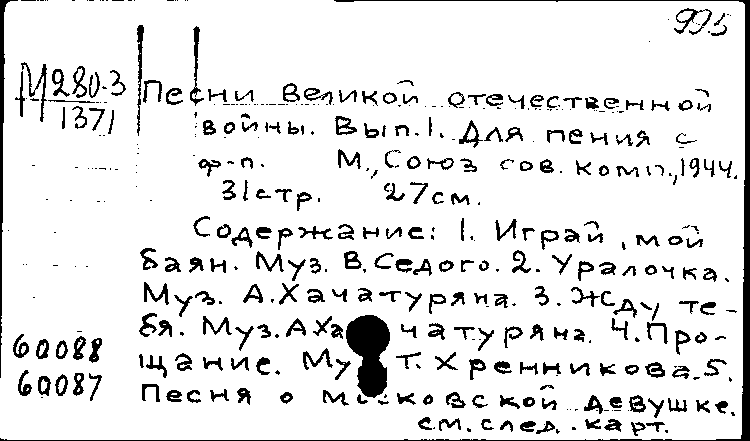 995
М280-3
1371
Песни великой отечественной
войны. Вып.1. Для пения с
ф-п. М., Союз сов. комп., 1944.
31 стр. 27 см.
Содержание: 1. Играй, мой
баян. Муз. В. Седого. 2. Уралочка.
Муз. А. Хачатуряна. 3. Жду те-
бя. Муз. А Ха чатуряна. 4. Про-
щание. Му Т. Хренникова. 5.
Песня о московской девушке.
см. след. карт.
60088
60087